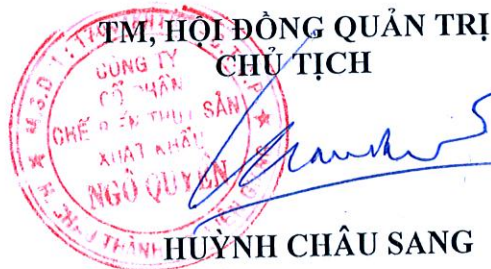 TM, HỘI ĐỒNG QUẢN TRỊ
CHỦ TỊCH
CÔNG TY
CỔ PHẦN
CHẾ BIẾN THUỶ SẢN
XUẤT KHẨU
NGÔ QUYỀN
HUỲNH CHÂU SANG